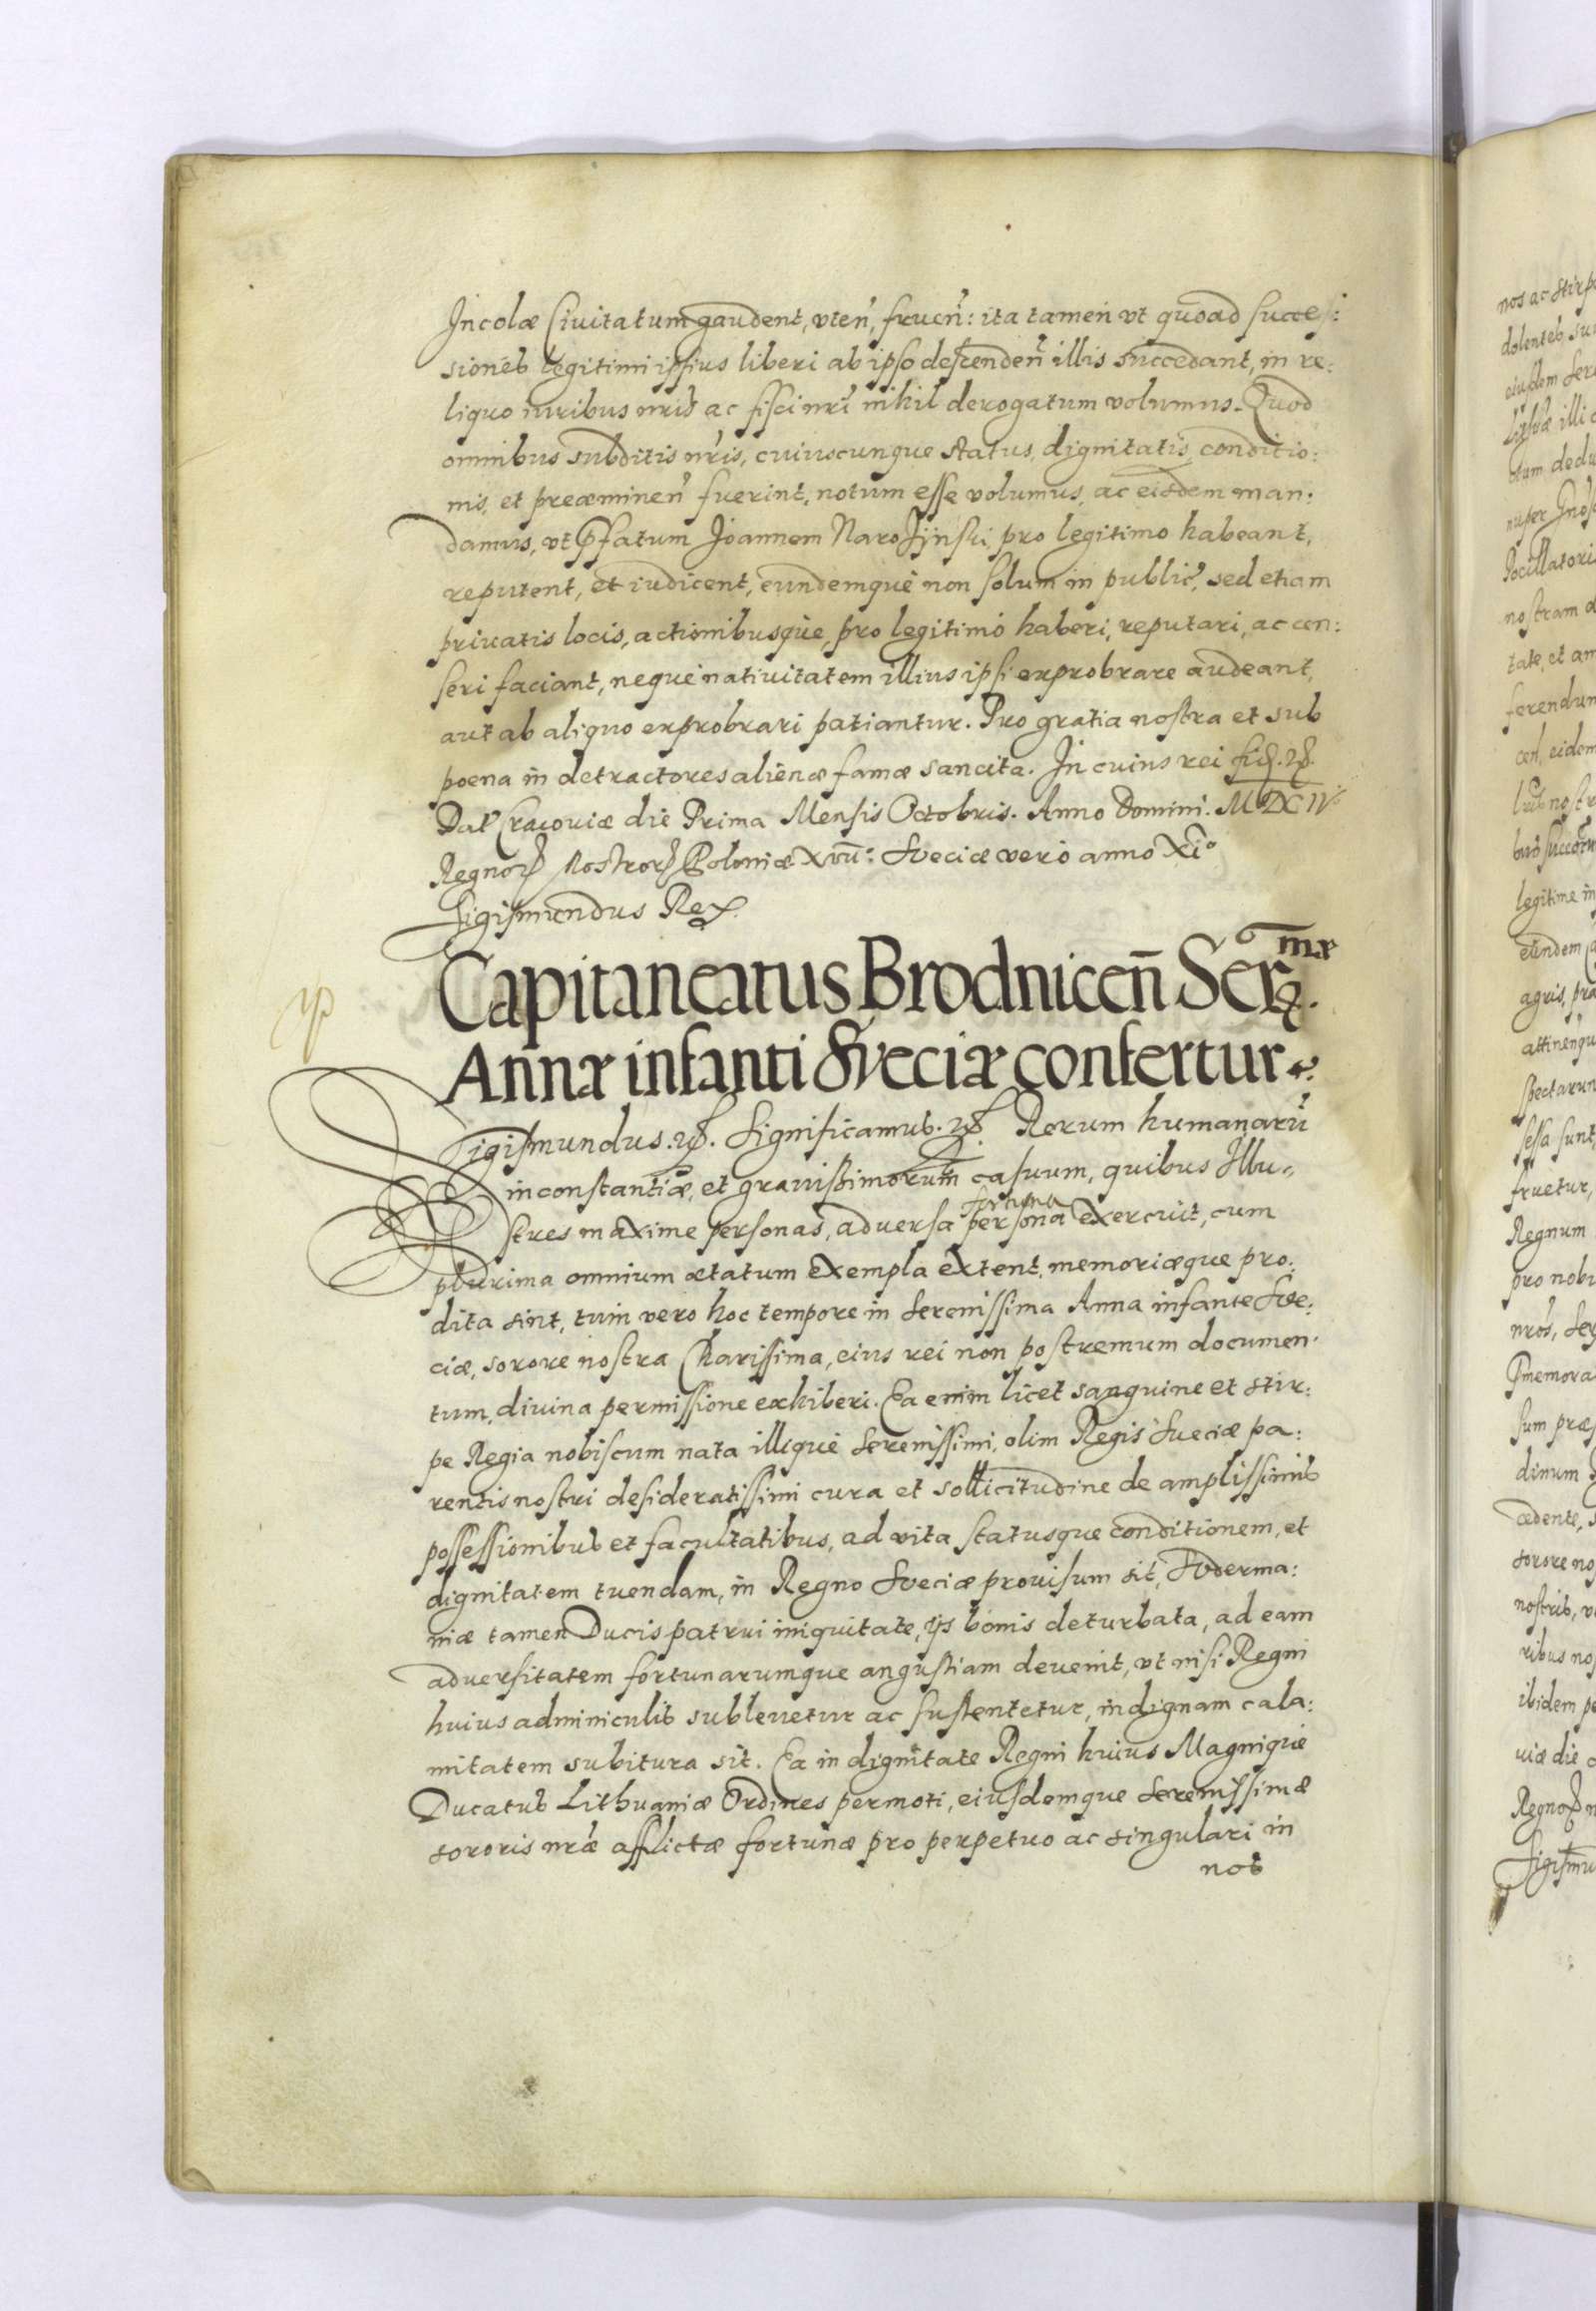 Incolæ Ciuitatum gaudent, vteñ, frueñ: ita tamen vt quoad succes:
sioneb legitimi ipsius liberi ab ipso descendeñt illis succedant, in re:
liquo iuribus nrīs ac fisci nrī nihil derogatum volumus. Quod
omnibus subditis nrīs, cuiuscunque status, dignitatis, conditio:
nis, et præeminen fuerint, notum esse volumus, ac eisdem man:
damus, vt p̄fatum Joannem Naro Jjnski pro legitimo habeant,
reputent, et iudicent, eundemque non solum in public, sed etiam
priuatis locis, actionibusque, pro legitimo haberi, reputari, ac cen:
seri faciant, neque natiuitatem illius ipsi exprobrare audeant,
aut ab aliquo exprobrari patiantur. Pro gratia nostra et sub
poena in detractores alienæ famæ sancita. In cuius rei fiđ. ꝛc.
Dat Cracouiæ die Prima Mensis Octobris. Anno Domini. MDCIV
Regnoꝝ Nostroꝝ Poloniæ XVII: Sveciæ vero anno XIo
Sigismundus Rex.
Capitaneatus Brodniceñ Ser mæ.
Annæ infanti Sveciæ confertur.
Sigismundus. ꝛc. Significamus. ꝛc Rerum humanarū
inconstantiæ, et grauissimorum casuum, quibus Illu,
stres maxime personas, aduersa persona fortuna exercuit, cum
plurima omnium ætatum exempla extent, memoriæque pro:
dita sint, tum vero hoc tempore in Serenissima Anna infante Sve:
ciæ, sorore nostra Charissima, eius rei non postremum documen:
tum, diuina permissione exhiberi. Ea enim licet sanguine et stir:
pe Regia nobiscum nata illique Serenissimi, olim Regis Sueciæ pa:
rentis nostri desideratissimi cura et sollicitudine de amplissimis
possessionibus et facultatibus, ad vita statusque conditionem, et
dignitatem tuendam, in Regno Sveciæ prouisum sit, Suderma:
niæ tamen Ducis patrui iniquitate, ijs bonis deturbata, ad eam
aduersitatem fortunarumque angustiam deuenit, vt nisi Regni
huius adminiculis subleuetur ac sustentetur, indignam cala:
mitatem subitura sit. Ea indignitate Regni huius Magnique
Ducatus Lithuaniæ Ordines permoti, eiusdemque Serenissimæ
sororis nrǣ afflictæ fortunæ pro perpetuo ac singulari in
nos